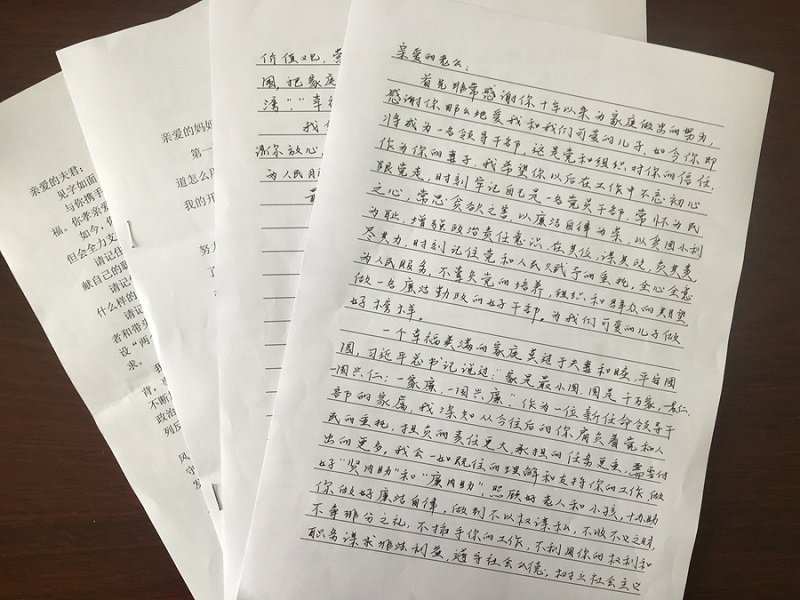 亲爱的夫君：
见字如面
与你携手
福。你孝亲爱
如今，你
但会全力支
请记住
献自己的聪
请记
什么样的
请记
者和带头
设“两
求。
背，
不断
政治
列反
风
守
发
亲爱的妈妈
第一
道怎么
我的开
努力
了
价值观，
国，把家庭
湾”，“幸福
我
谢你放心
为人民服
亲爱的老公：
首先非常感谢你十年以来为家庭做出的努力，
感谢你那么地爱我和我们可爱的儿子，如今你即
将成为一名领导干部，这是党和组织对你的信任，
作为你的妻子，我希望你以后在工作中不忘初心
跟党走，时刻牢记自己是一名党员干部，常怀为民
之心，常思贪欲之害，以廉洁自律为荣，以贪图小利
为耻，增强政治责任意识，在其位，谋其政，负其责
尽其力，时刻记住党和人民赋予的重托，全心全意
为人民服务，不辜负党的培养，组织和群众的期望
做一名廉洁勤政的好干部，为我们可爱的儿子做
好榜样。
一个幸福美满的家庭莫过于夫妻和睦，平安团
圆，习近平总书记说过：“家是最小国，国是千万家，一家仁，
一国兴仁；一家廉，一国兴廉”，作为一位新任命领导干
部的家属，我深知从今往后的你肩负着党和人
民的重托，担负的责任更大，承担的任务更重，需要付
出的更多，我会一如既往的理解和支持你的工作，做
好“贤内助”和“廉内助”，照顾好老人和小孩，协助
你做好廉洁自律，做到不以权谋私，不收不义之财，
不拿非分之礼，不插手你的工作，不利用你的权利和
职务谋求非法利益，遵守社会公德，树立社会主义